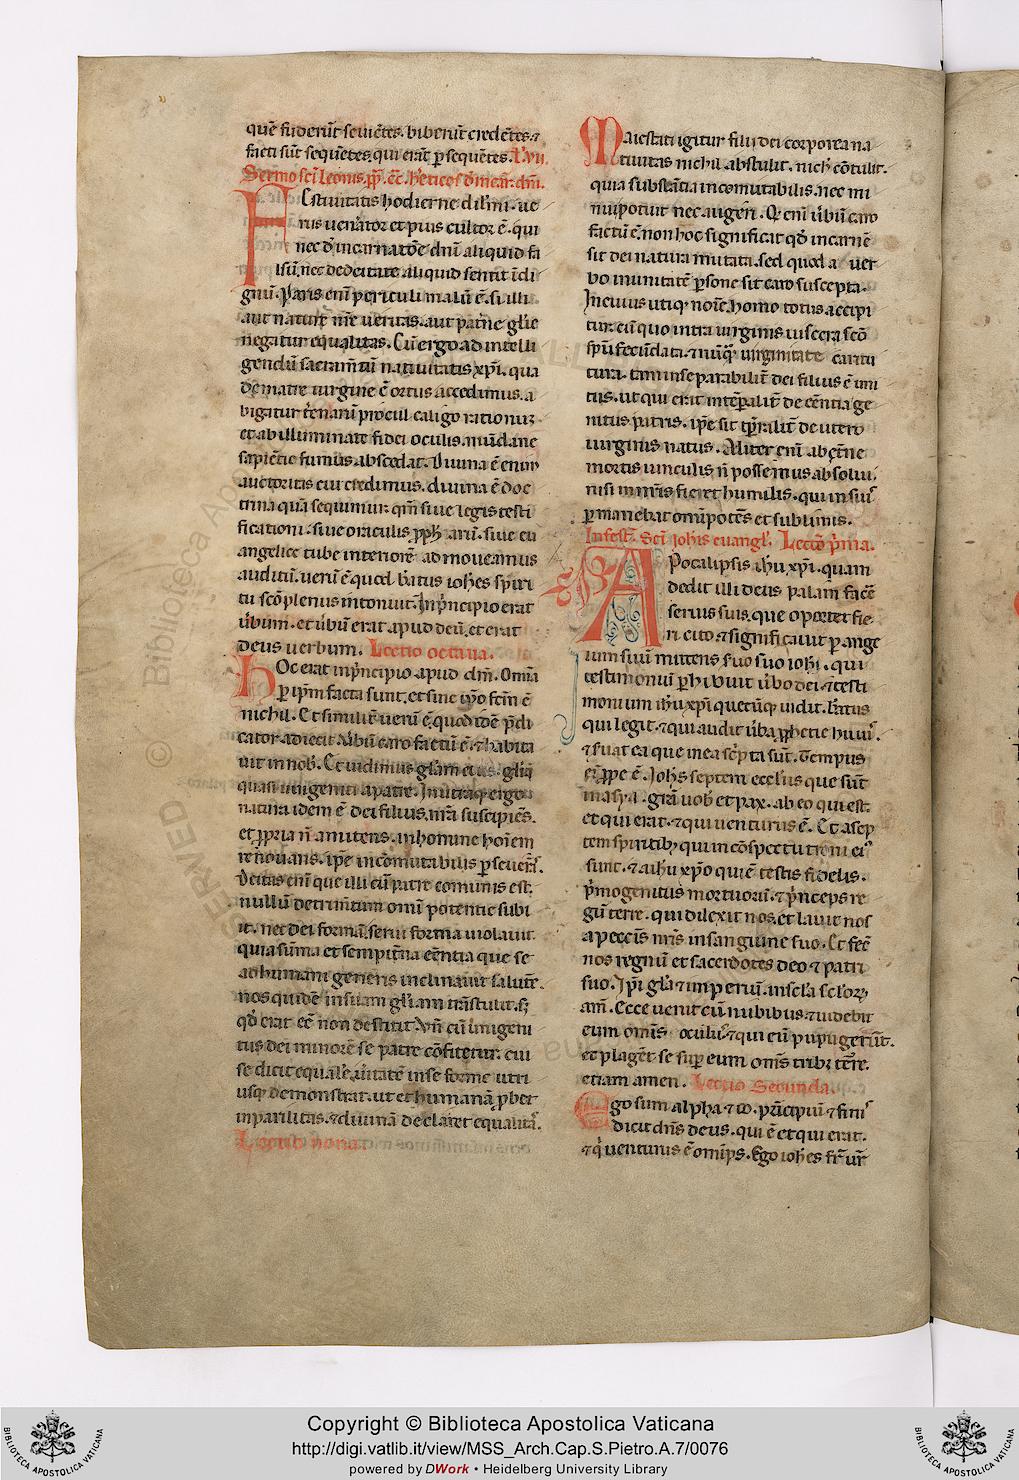 quē fuderūt seuiētes. biberūt credētes. ⁊
facti sūt sequētes, qui erāt ꝑsequētes. L̄ vii.
Sermo sc̄i Leonis p̄p̄. cō. h̄eticos d̄ incar. dn̄i.
FEstiuitatis hodierne dilm̄i. ue
rus uen̄ator et pius cultor ē. qui
nec d̄ incarnatōe dn̄i aliquid fa
lsū. nec de deitate aliquid sentit īdi
gnū. Paris enī periculi malū ē. si illi
aut nature nr̄e ueritas. aut pat̄ne glīe
negatur equalitas. Cū ergo ad intelli
gendū sacram̄tū natiuitatis xp̄i. qua
de matre uirgine ē ortus accedimus. a
bigatur t̄renarū procul caligo rationuꝫ
et ab illuminate fidei oculis. mūdane
sapiētie fumus abscedat. Diuina ē enim
auctoritas cui credimus. diuina ē doc
trina quā sequimur. qm̄ siue legis testi
ficationi. siue oraculis ꝓph̄arū. siue eu
angelice tube interiorē admoueamus
auditū. uerū ē quod b̄atus ioh̄es spiri
tu sc̄o plenus intonuit. In p̄ncipio erat
ūbum. et ūbū erat apud deū. et erat
deus uerbum. Lectio octaua.
hOc erat in p̄ncipio apud dm̄. Omīa
ꝑ ip̄m facta sunt. et sine ip̄o fc̄m ē
nichil. Et similit̄ uerū ē. quod idē p̄di
cator adiecit. Ūbū caro factū ē. ⁊ habita
uit in nob̄. Et uidimus gl̄am eius. gl̄iā
quasi unigeniti a patre. In utraqꝫ ergo
natura idem ē dei filius. nr̄a suscipiēs.
et ꝓpria n̄ amittens. in homine hoīem
renouans. in se incōmutabilis ꝑseuer̄s.
Deitas enī que illi cū patre comunis est.
nullū detrim̄tum omī potentie subi
it. nec dei formā. serui forma uiolauit.
quia sūma et sempit̄na eēntia que se
ad humani generis inclinauit salutē.
nos quidē in suam gl̄iam trāstulit. sꝫ
qd̄ erat eē non destitit. Vn̄ cū unigeni
tus dei minorē se patre cōfitetur. cui
se dicit equalē. ūitatē in se forme utri
usqꝫ demonstrat. ut et humanā ꝓbet
inparilitas. ⁊ diuinā declaret equalitas.
Lectio nona.
Maiestati igitur filii dei corporea na
tiuitas nichil abstulit. nich̄ cōtulit.
quia substātia incomutabilis. nec mi
nui potuit nec augeri. Qd̄ enī ūbū caro
factū ē. non hoc significat qd̄ incarnē
sit dei natura mutata. sed quod a uer
bo in unitatē ꝑsone sit caro suscepta.
In cuius utiqꝫ noīe homo totus accipi
tur. cū quo intra uirginis uiscera sc̄o
sp̄u fecūdata. ⁊ nūqꝫ uirginitate caritu
tura. tam inseparabilit̄ dei filius ē uni
tus. ut qui erat intēporalit̄ de eēntia ge
nitus patris. ip̄e sit tp̄ralit̄ de utero
uirginis natus. Aliter enī ab et̄ne
mortis uinculis n̄ possemus absolui.
nisi in nr̄is fieret humilis. qui in suis
ꝑmanebat omīpotēs et sublimis.
In fest̄. Sc̄i ioh̄is euangl̄. Lectō p̄ma.
APocalipsis ih̄u xp̄i. quam
dedit illi deus palam facē
seruis suis. que oportet fie
ri cito. ⁊ significauit ꝑ ange
lum suū mittens seruo suo ioh̄i. qui
testimoniū ꝑhibuit ūbo dei. ⁊ testi
monium ih̄u xp̄i quecūqꝫ uidit. B̄atus
qui legit. ⁊ qui audit ūba ꝓphetie huiꝰ.
⁊ seruat ea que in ea sc̄pta sūt. Tempus
enī ꝓpe ē. Ioh̄s septem ecclīis que sūt
in asya. grā uob̄ et pax. ab eo qui est.
et qui erat. ⁊ qui uenturus ē. Et a sep
tem spiritibꝫ qui in cōspectu troni eiꝰ
sunt. ⁊ a ih̄u xp̄o qui ē testis fidelis.
p̄mogenitus mortuorū. ⁊ p̄nceps re
gū terre. qui dilexit nos. et lauit nos
a peccīs nr̄is in sanguine suo. Et fec̄
nos regnū et sacerdotes deo ⁊ patri
suo. Ip̄i gl̄a ⁊ imperiū. in sc̄la sc̄loꝝ
am̄. Ecce uenit cū nubibus. ⁊ uidebit
eum omīs oculus. ⁊ qui eū pupugerūt.
et plagēt se suꝑ eum omēs tribꝫ t̄re.
etiam amen. Lectio Secunda.
Ego sum alpha ⁊ ω. p̄ncipiū ⁊ finis
dicit dn̄s deus. qui ē et qui erat.
⁊ q̄ uenturus ē omīps. Ego ioh̄es fr̄ ur̄
Copyright © Biblioteca Apostolica Vaticana
http://digi.vatlib.it/view/MSS_Arch.Cap.S.Pietro.A.7/0076
powered by DWork • Heidelberg University Library